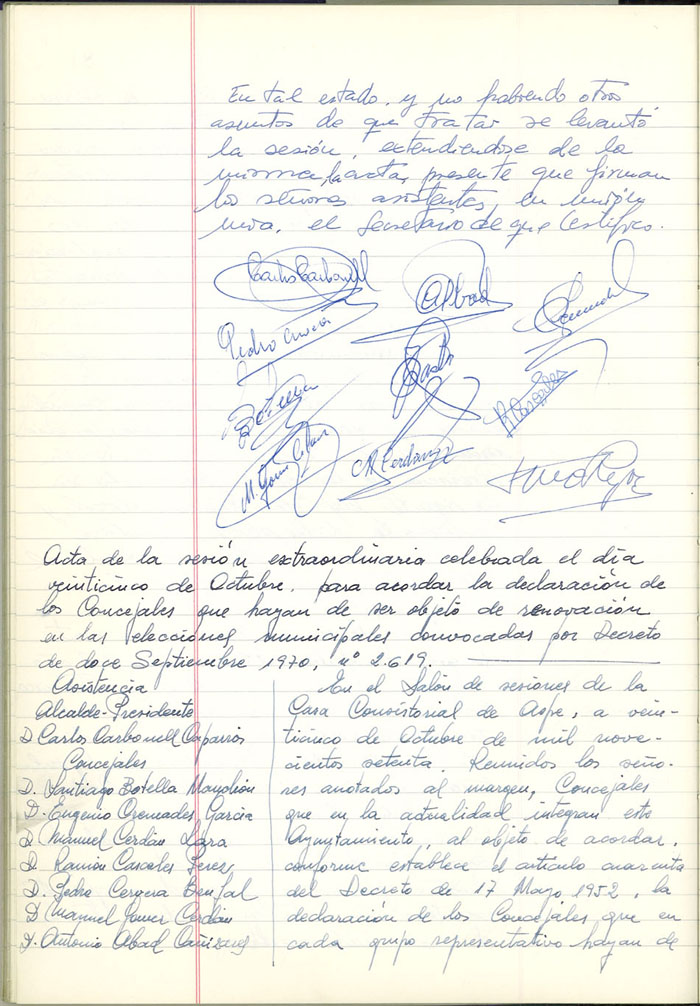 En tal estado, y no habiendo otros
asuntos de que tratar se levantó
la sesión, extendiendose de la
misma, la acta, presente que firman
los señores asistentes, en unión
mia, el Secretario de que Certifico.
Carlos Carbonell
A Abad
Pedro
Botella
M. Gomez Cerdan
M Cerdan
R Cascales
Acta de la sesión extraordinaria celebrada el día
veinticinco de Octubre, para acordar la declaración de
los Concejales que hayan de ser objeto de renovación
en las elecciones municipales convocadas por Decreto
de doce Septiembre 1970, nº 2.619.
Asistencia
Alcalde-Presidente
D Carlos Carbonell Caparrós
Concejales
D. Santiago Botella Manchón
D. Eugenio Cremades Garcia
D Manuel Cerdán Lara
D. Ramón Cascales Perez
D. Pedro Cerquera
D Manuel Gomez Cerdán
D. Antonio Abad Cañizares
En el Salón de sesiones de la
Casa Consistorial de Aspe, a vein-
ticinco de Octubre de mil nove-
cientos setenta. Reunidos los seño-
res anotados al margen, Concejales
que en la actualidad integran este
Ayuntamiento, al objeto de acordar,
conforme establece el artículo cuarenta
del Decreto de 17 Mayo 1952, la
declaración de los Concejales que en
cada grupo representativo hayan de